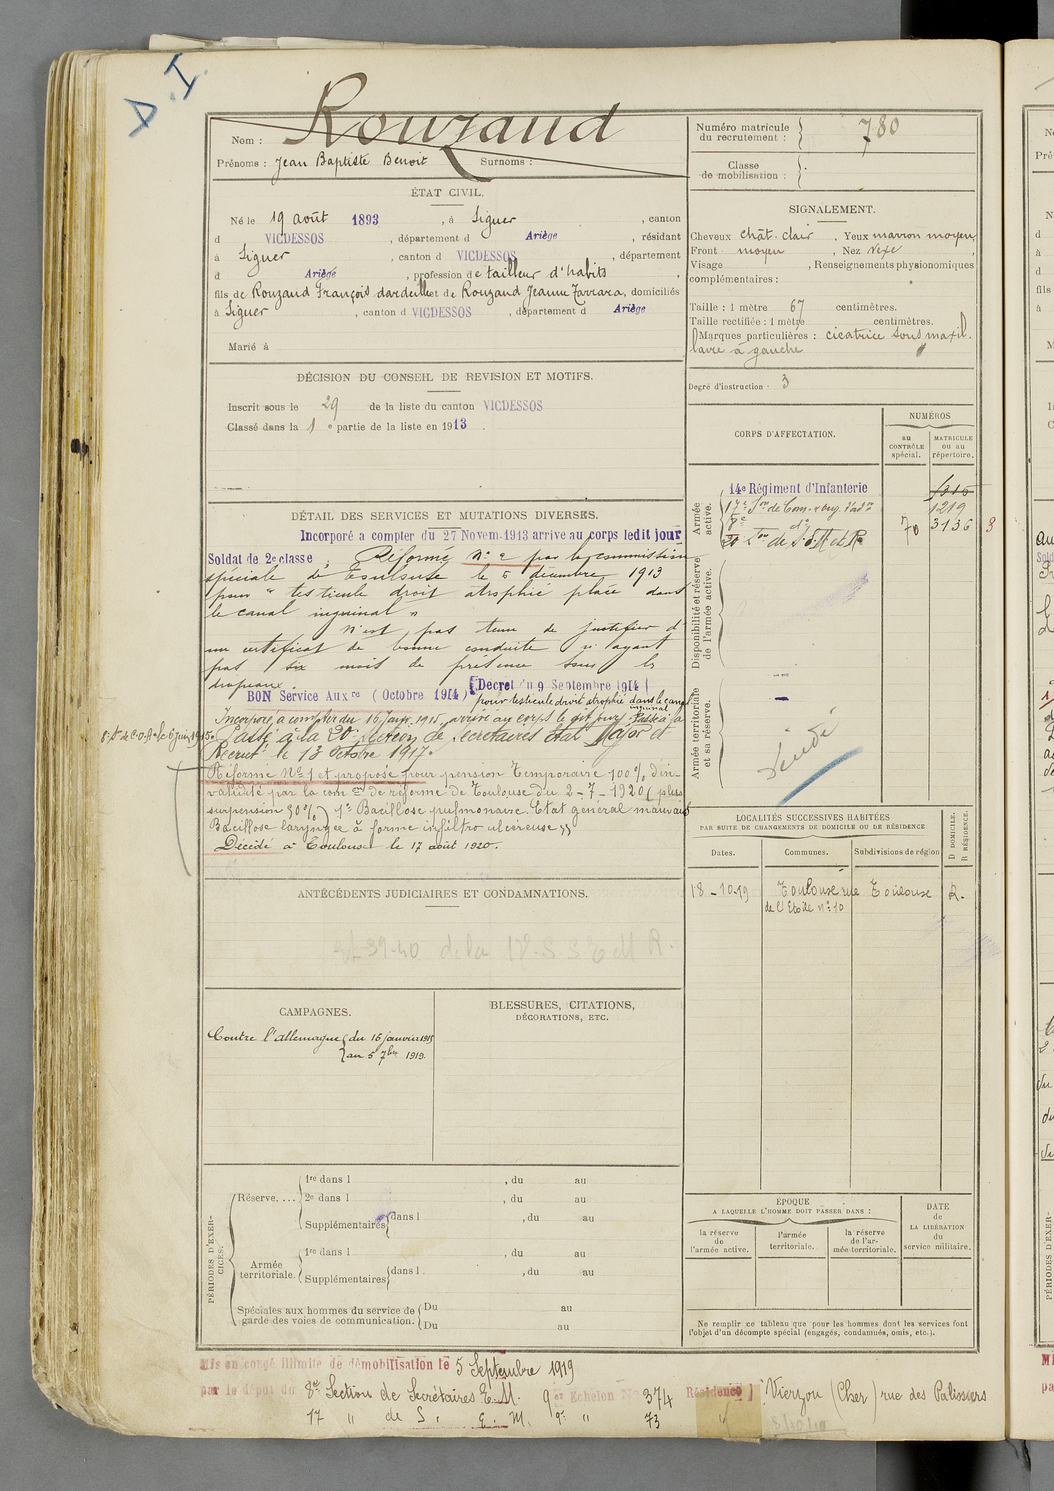 D.I.
Nom : Rouzaud
Prénoms : Jean Baptiste Benoit Surnoms :
ÉTAT CIVIL.
Né le 19 août 1893, à Siguer, canton
d VICDESSOS, département d Ariège, résidant
à Siguer, canton d VICDESSOS, département
d Ariège, profession de tailleur d'habits,
fils de Rouzaud François dardeill et de Rouzaud Jeanne Zarrara, domiciliés
à Siguer, canton d VICDESSOS, département d Ariège
Marié à
DÉCISION DU CONSEIL DE REVISION ET MOTIFS.
Inscrit sous le 29 de la liste du canton VICDESSOS
Classé dans la 1e partie de la liste en 1913.
DÉTAIL DES SERVICES ET MUTATIONS DIVERSES.
Incorporé a compter du 27 Novem. 1913 arrive au corps ledit jour
Soldat de 2e classe, Réformé No 2 par la commission
spéciale de Toulouse le 5 décembre 1913
pour " testicule droit atrophié placé dans
le canal inguinal "
N'est pas tenu de justifier d'
un certificat de bonne conduite n'ayant
pas six mois de présence sous les
drapeaux.
BON Service Auxre (Octobre 1914) [Decret du 9 Septembre 1914]
pour testicule droit atrophié dans le canal
inguinal
Incorporé à compter du 16 Janvr. 1915, arrivé au corps le dit jour. Passé à la
17e Son de C.O.A. le 6 juin 1915.
Passé à la 20e Section de Secrétaires état Major et
Recrutt le 13 Octobre 1917.
Réformé No 1 et proposé pour pension temporaire 100% d'in-
validité par la com on de réforme de Toulouse du 2-7-1920 ( plus
surpension 30%) 1o Bacillose pulmonaire. Etat général mauvais
Bacillose laryngée à forme infiltro ulcéreuse "
Décidé à Toulouse le 17 août 1920.
ANTÉCÉDENTS JUDICIAIRES ET CONDAMNATIONS.
39-40 de la 17. S.S.E M R.
CAMPAGNES.
Contre l'allemagne { du 16 janvier 1915
au 5 7bre 1919.
BLESSURES, CITATIONS,
DÉCORATIONS, ETC.
PÉRIODES D'EXERCICES.
Réserve, ... 1re dans l , du au
2e dans l , du au
Supplémentaires dans l , du au
Armée territoriale. 1re dans l , du au
Supplémentaires dans l , du au
Spéciales aux hommes du service de garde des voies de communication. Du au
Du au
Numéro matricule du recrutement : 780
Classe de mobilisation :
SIGNALEMENT.
Cheveux chât. clair, Yeux marron moyen,
Front moyen, Nez vexe,
Visage , Renseignements physionomiques
complémentaires :
Taille : 1 mètre 67 centimètres.
Taille rectifiée : 1 mètre centimètres.
Marques particulières : cicatrice sous maxil.
laire à gauche
Degré d'instruction - 3
CORPS D'AFFECTATION.
NUMÉROS
au CONTRÔLE spécial.
MATRICULE ou au répertoire.
Armée active.
14e Régiment d'Infanterie
1219
70 3136 8
Disponibilité et réserve de l'armée active.
Armée territoriale et sa réserve.
LOCALITÉS SUCCESSIVES HABITÉES
PAR SUITE DE CHANGEMENTS DE DOMICILE OU DE RÉSIDENCE
Dates. Communes. Subdivisions de région D DOMICILE. R RÉSIDENCE.
18-10-19 Toulouse rue Toulouse R.
de l'Etoile no 10
ÉPOQUE
A LAQUELLE L'HOMME DOIT PASSER DANS :
la réserve de l'armée active.
l'armée territoriale.
la réserve de l'armée-territoriale.
DATE
de
LA LIBÉRATION
du
service militaire.
Ne remplir ce tableau que pour les hommes dont les services font
l'objet d'un décompte spécial (engagés, condamnés, omis, etc.).
Mis en congé illimité de démobilisation le 5 Septembre 1919
par le dépôt du 8e Section de Secrétaires E.M. 9e Echelon No 374 Résidence ] Vierzon (Cher) rue des Palissiers
17 " de S. E. M. 9e " 73 "